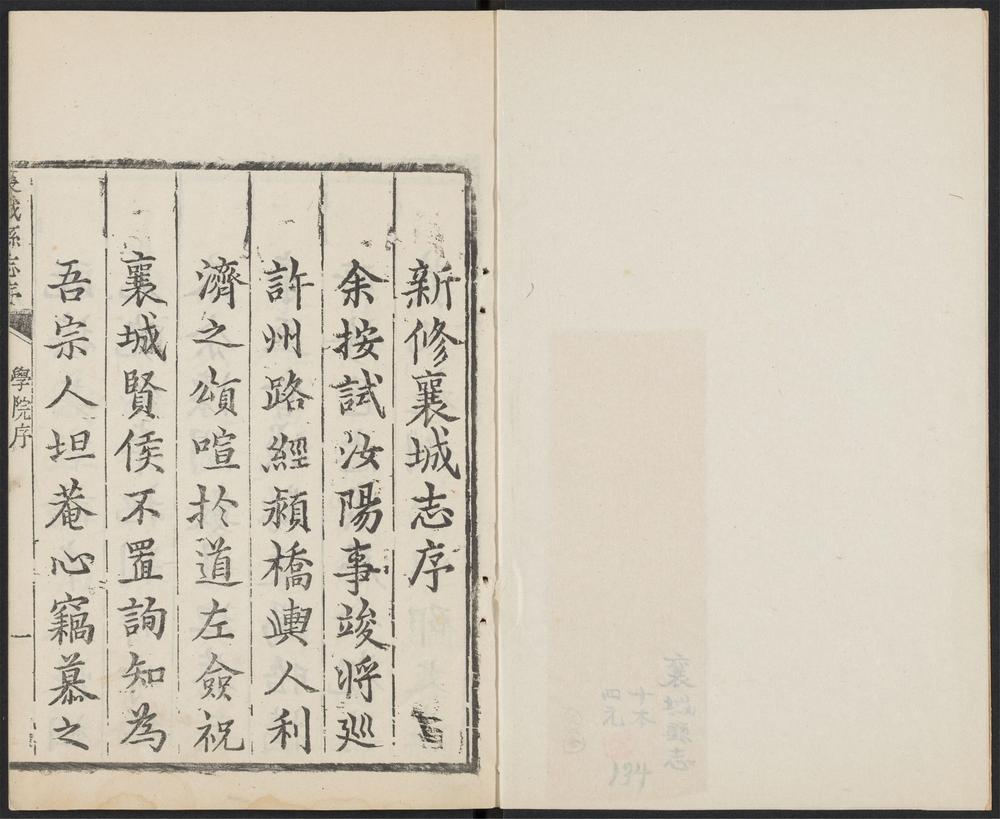 襄城縣志
十本
四元
134
新修襄城志序
余按試汝陽事竣將廵
許州路經潁橋輿人利
濟之頌喧於道左僉祝
襄城賢侯不置詢知為
吾宗人坦菴心竊慕之
襄城縣志序
學院序
一